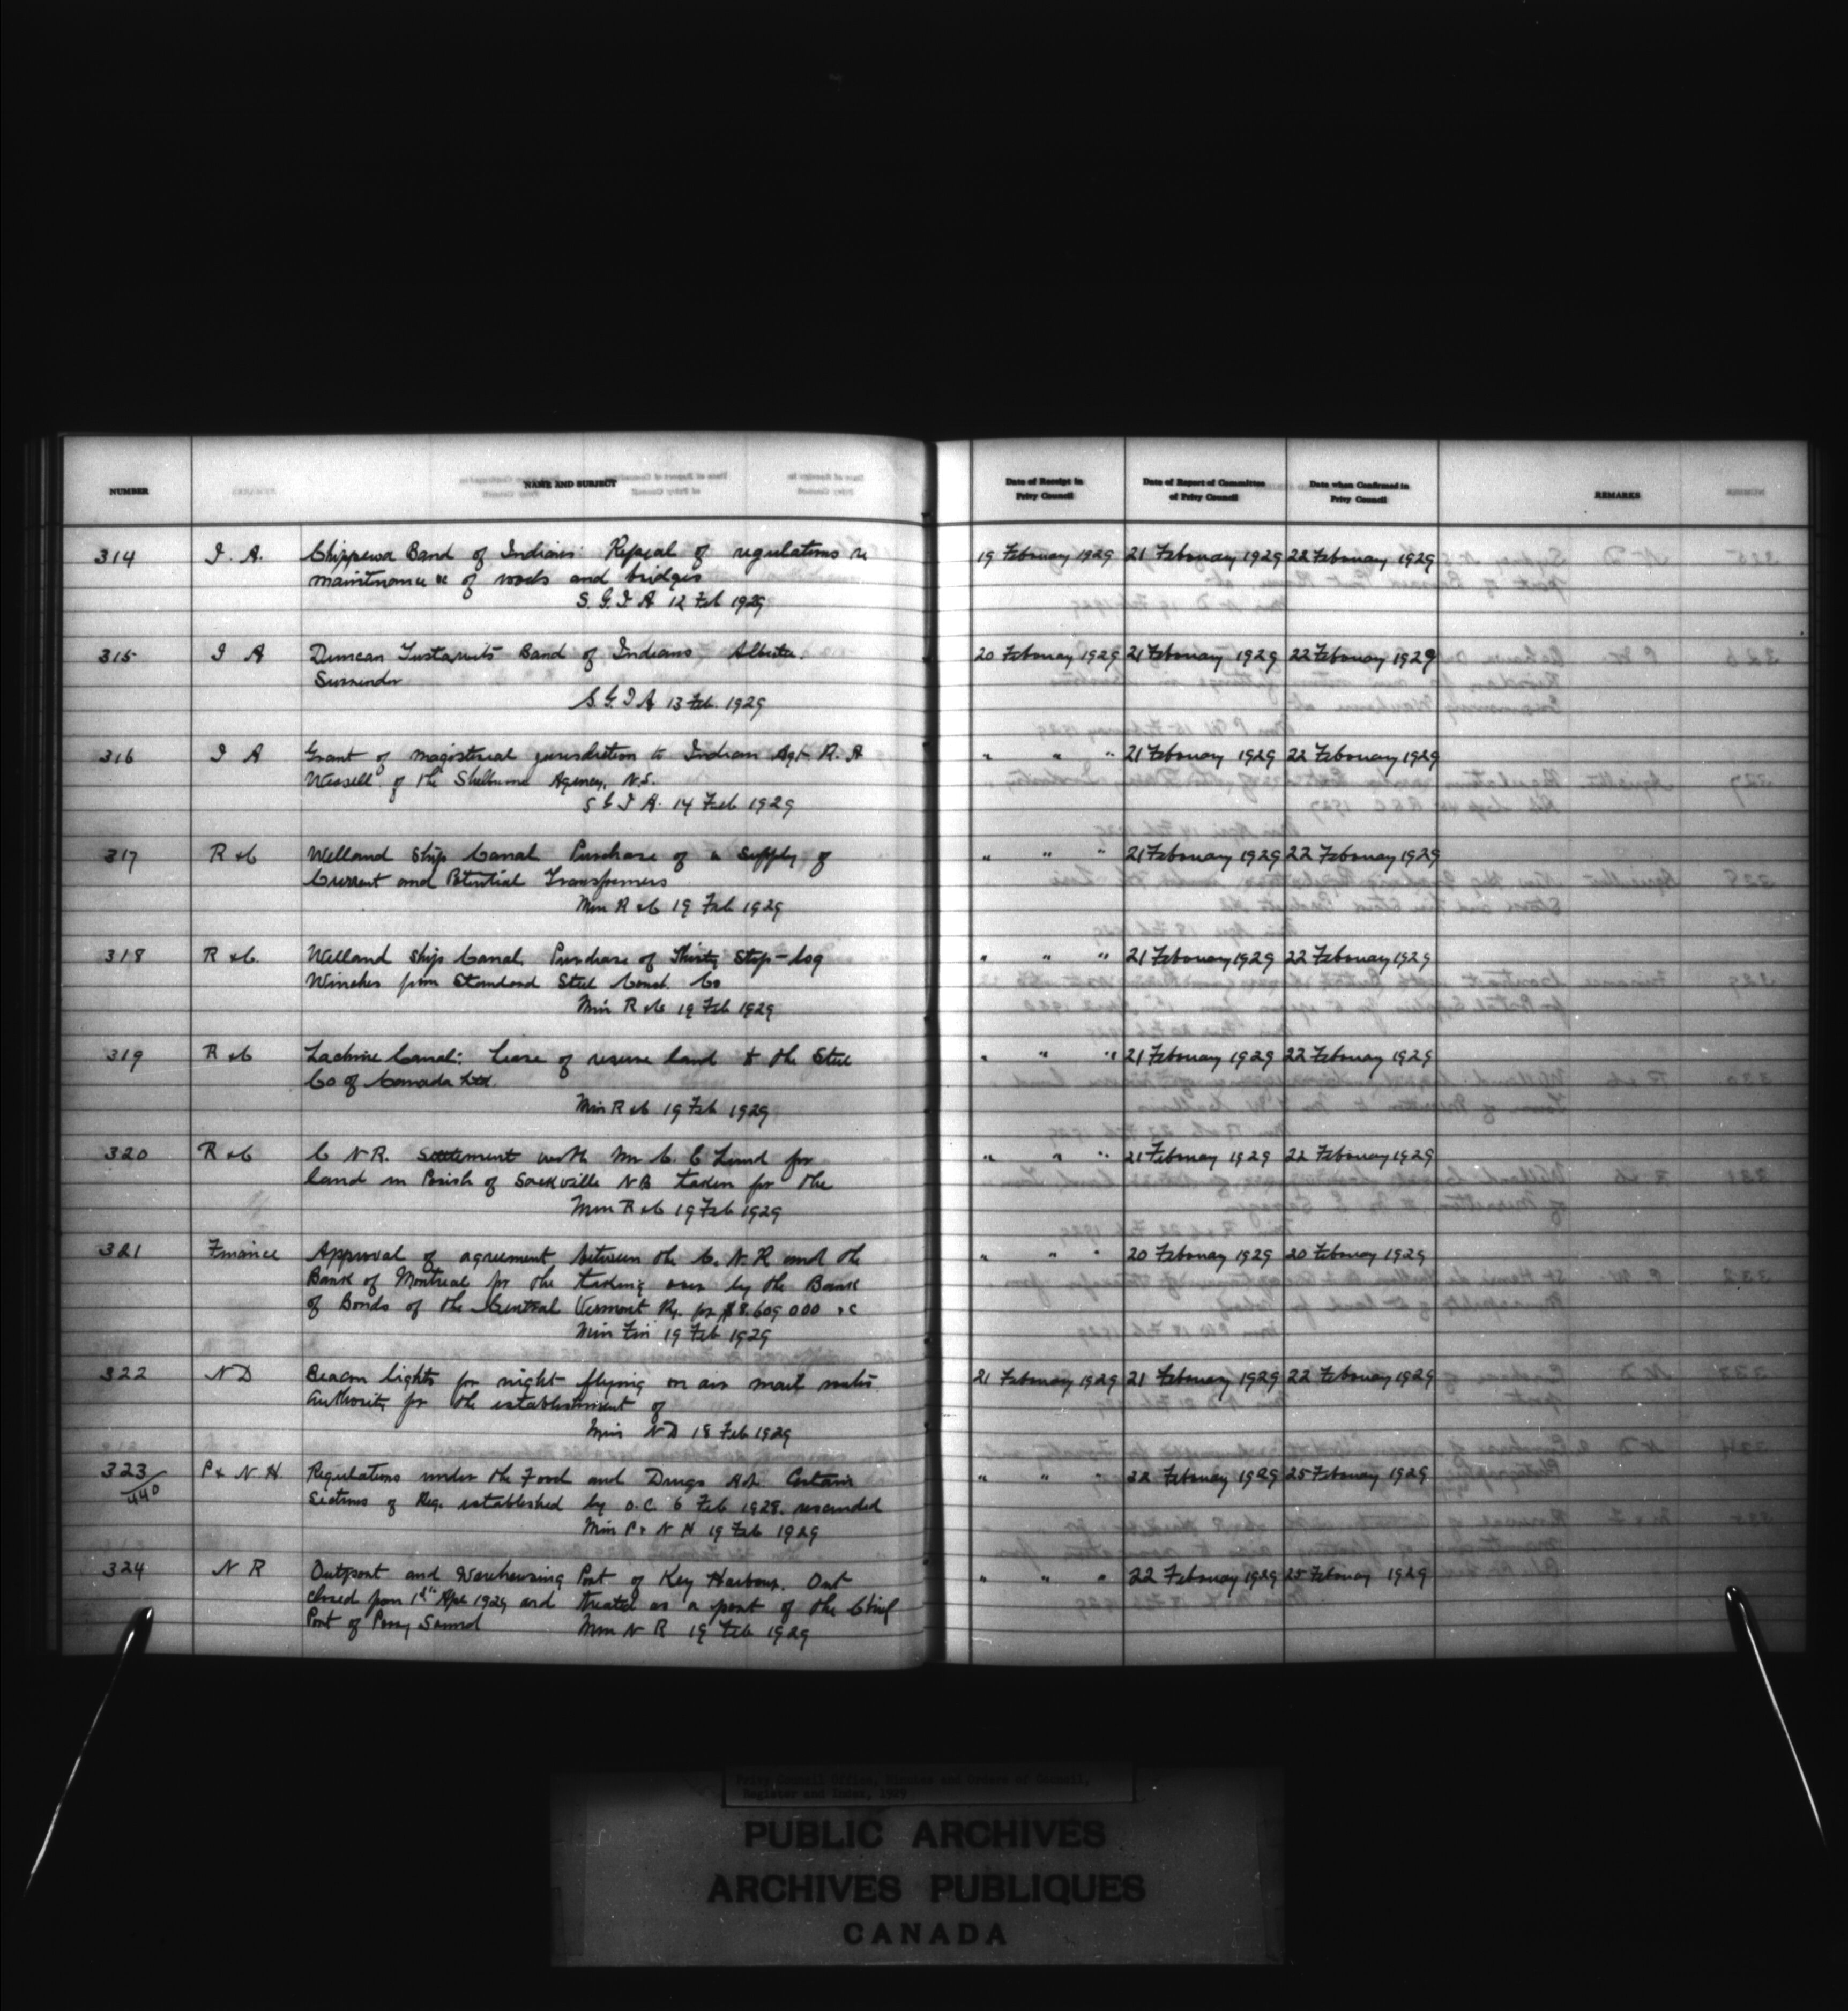 NUMBER NAME AND SUBJECT Date of Receipt in Privy Council Date of Report of Committee of Privy Council Date when Confirmed in Privy Council REMARKS
314 I. A. Chippewa Band of Indians: Repeal of regulations re 19 February 1929 21 February 1929 22 February 1929
maintenance &c of roads and bridges
S. G. I A 12 Feb 1929
315 I A Duncan Band of Indians, Alberta. 20 February 1929 21 February 1929 22 February 1929
Surrender
S. G. I A 13 Feb. 1929
316 I A Grant of magisterial jurisdiction to Indian Agt R. A " " " 21 February 1929 22 February 1929
of the Shelburne Agency, N.S.
S G I A. 14 Feb 1929
317 R & C Welland Ship Canal Purchase of a supply of " " " 21 February 1929 22 February 1929
Current and Potential Transformers
Min R & C 19 Feb 1929
318 R & C. Welland Ship Canal, Purchase of Thirty Stop-Log " " " 21 February 1929 22 February 1929
Winches from Standard Steel Const. Co
Min R & C 19 Feb 1929
319 R & C Lachine Canal: Lease of reserve land to the Steel " " " 21 February 1929 22 February 1929
Co of Canada Ltd.
Min R & C 19 Feb 1929
320 R & C C N R. Settlement with Mr C. C Lund for " " " 21 February 1929 22 February 1929
land in Parish of Sackville NB taken for the
Min R & C 19 Feb 1929
321 Finance Approval of agreement between the C. N. R and the " " " 20 February 1929 20 February 1929
Bank of Montreal for the taking over by the Bank
of Bonds of the Central Vermont Ry. for $8.609 000 &c
Min Fin 19 Feb 1929
322 N D Beacon lights for night flying on air mail routes. 21 February 1929 21 February 1929 22 February 1929
Authority for the establishment of
Min N D 18 Feb 1929
323/440 P & N. H. Regulations under the Food and Drugs Act. Certain " " " 22 February 1929 25 February 1929
Sections of Reg. established by O.C. 6 Feb 1928. rescinded
Min P & N H 19 Feb 1929
324 N R Outport and Warehousing Port of Key Harbour. Out " " " 22 February 1929 25 February 1929
closed from 1st Apl 1929 and treated as a part of the Chief
Port of Parry Sound Min N R 19 Feb 1929
Privy Council Office, Minutes and Orders of Council,
Register and Index, 1929
PUBLIC ARCHIVES
ARCHIVES PUBLIQUES
CANADA